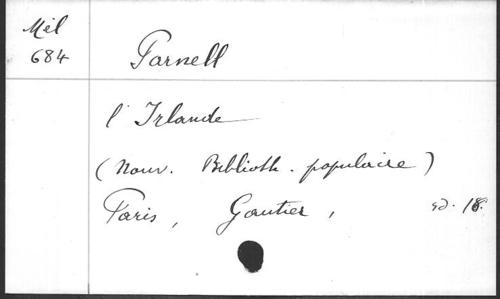 Mél
684
Parnell
l'Irlande
(Nouv. Biblioth. populaire)
Paris, Gautier, sd. 18.